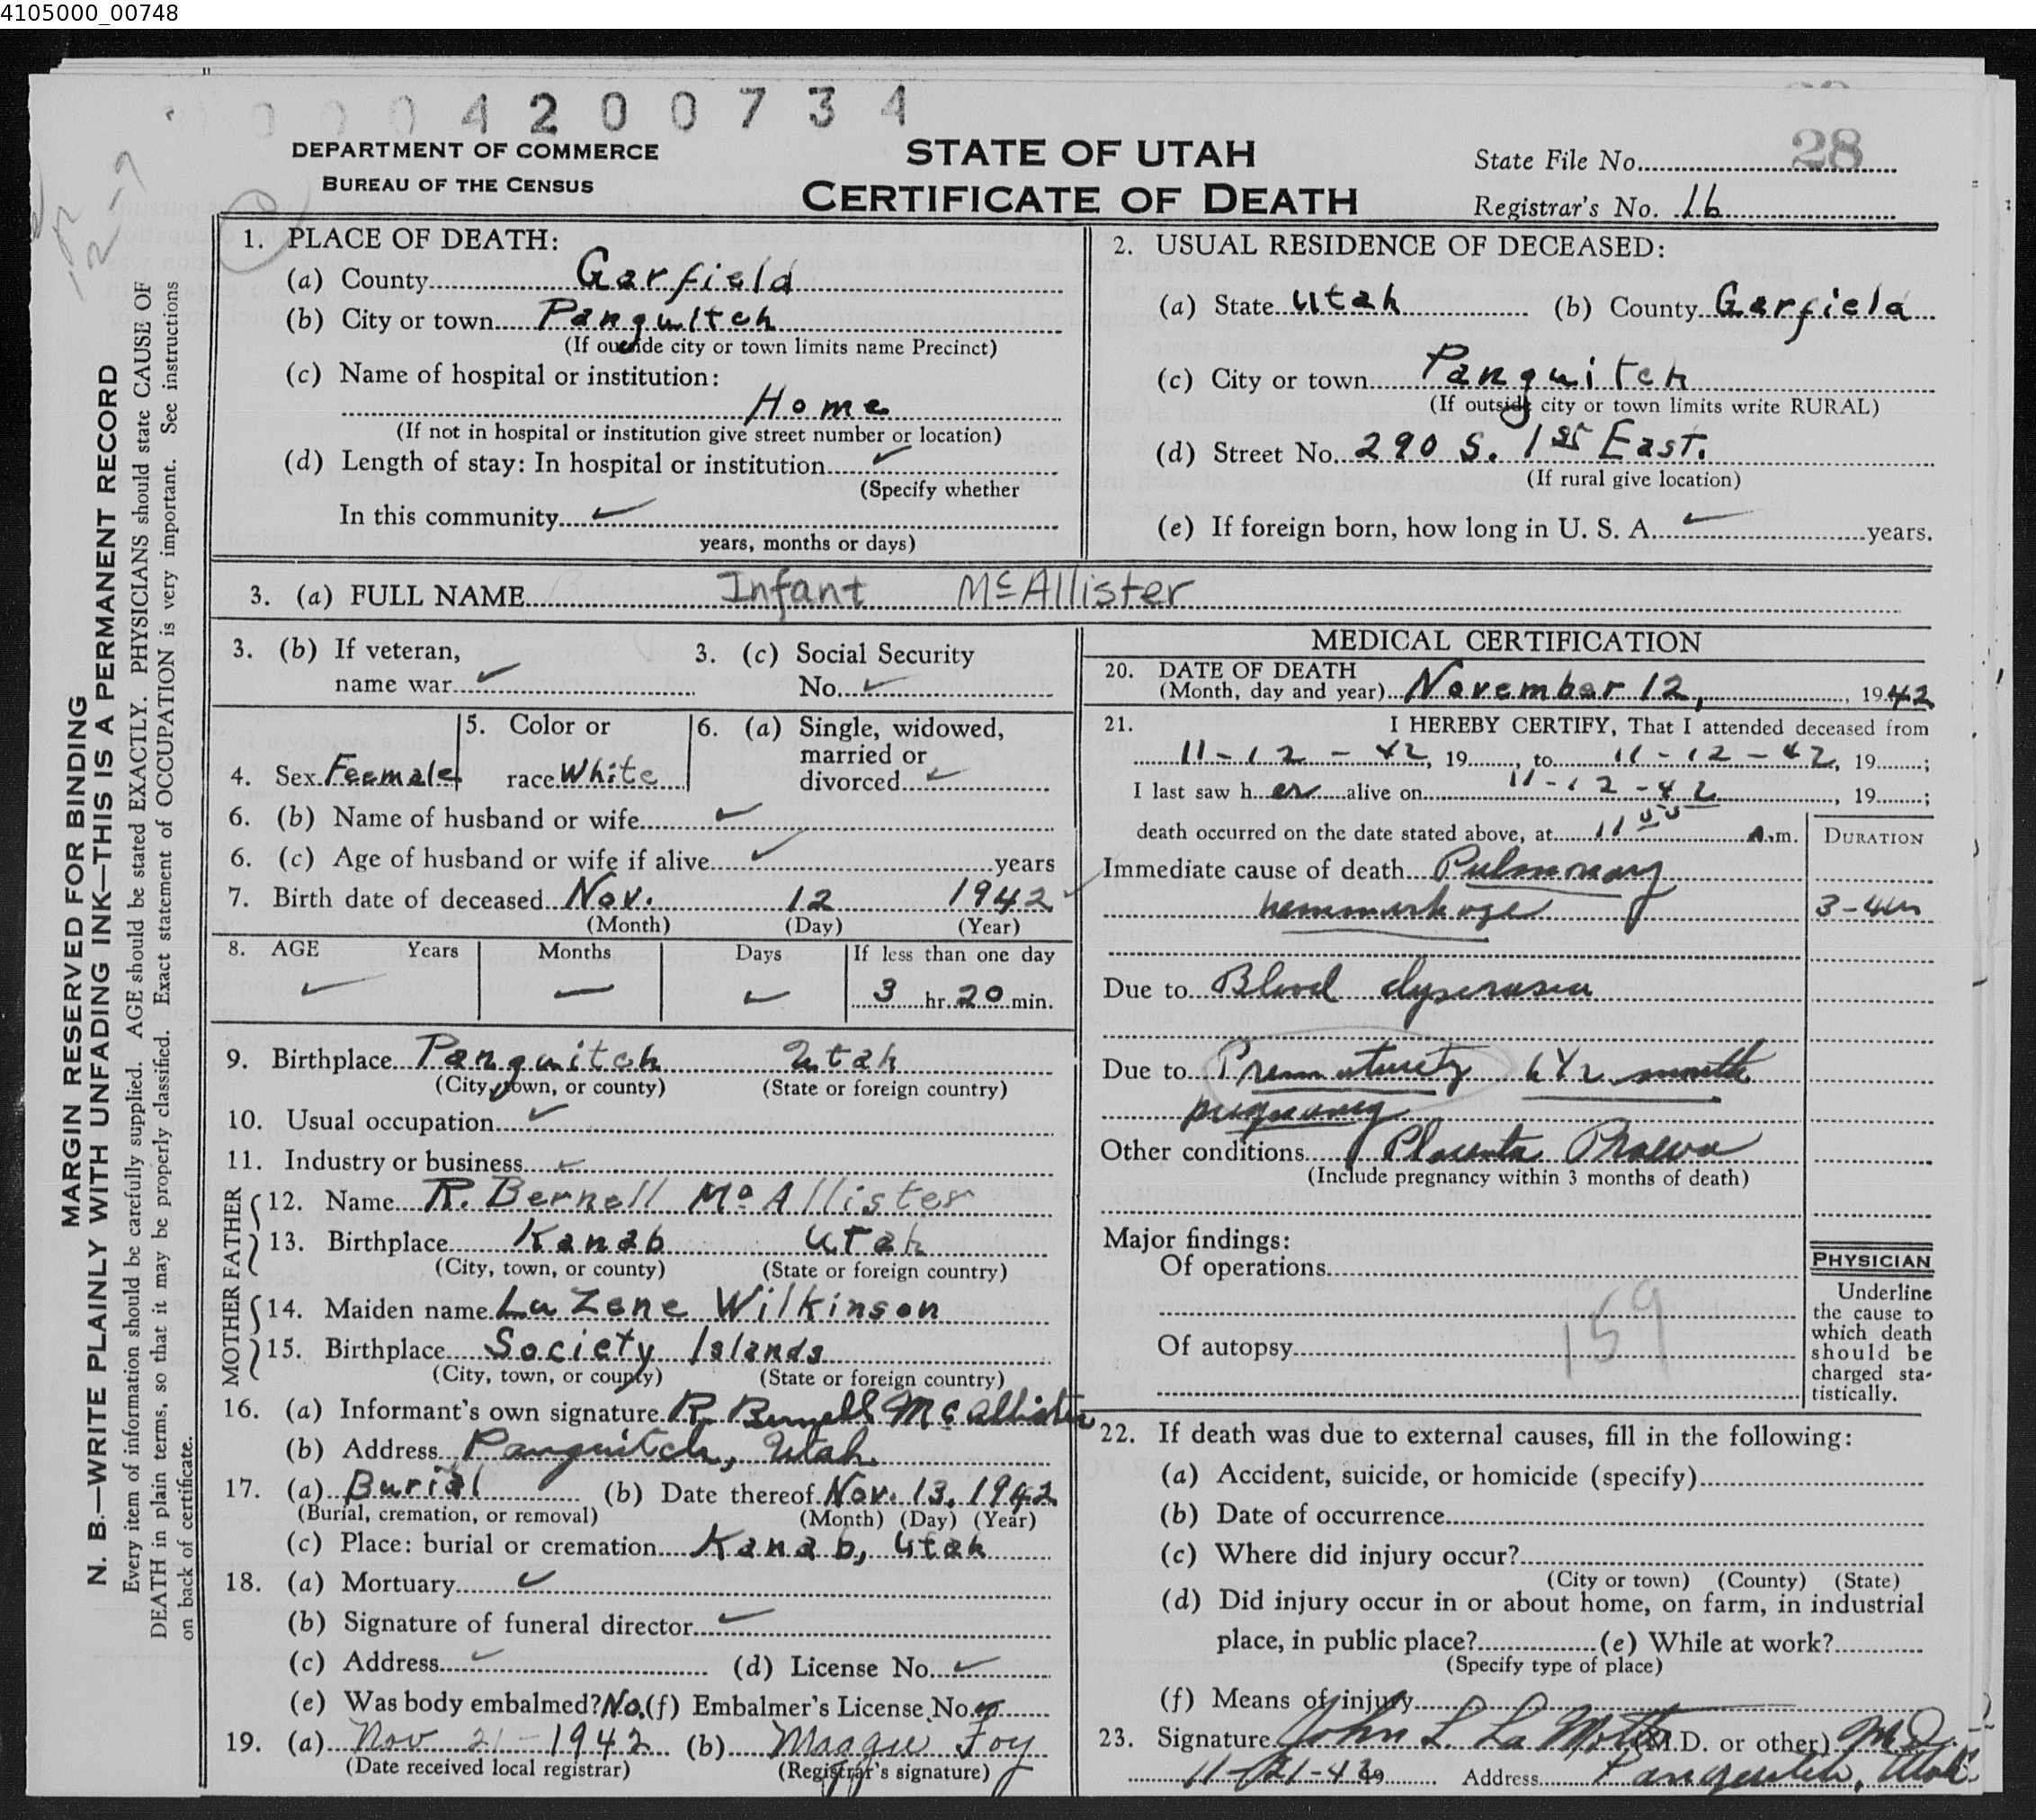 4105000_00748
0004200734
DEPARTMENT OF COMMERCE
BUREAU OF THE CENSUS
STATE OF UTAH
CERTIFICATE OF DEATH
State File No. 28
Registrar's No. 16
MARGIN RESERVED FOR BINDING
N. B.—WRITE PLAINLY WITH UNFADING INK—THIS IS A PERMANENT RECORD
Every item of information should be carefully supplied. AGE should be stated EXACTLY. PHYSICIANS should state CAUSE OF
DEATH in plain terms, so that it may be properly classified. Exact statement of OCCUPATION is very important. See instructions
on back of certificate.
1. PLACE OF DEATH:
(a) County Garfield
(b) City or town Panguitch
(If outside city or town limits name Precinct)
(c) Name of hospital or institution:
Home
(If not in hospital or institution give street number or location)
(d) Length of stay: In hospital or institution ✓
(Specify whether
In this community ✓
years, months or days)
2. USUAL RESIDENCE OF DECEASED:
(a) State Utah (b) County Garfield
(c) City or town Panguitch
(If outside city or town limits write RURAL)
(d) Street No. 290 S. 1st East.
(If rural give location)
(e) If foreign born, how long in U. S. A. ✓ years.
3. (a) FULL NAME Infant McAllister
3. (b) If veteran,
name war ✓
3. (c) Social Security
No. ✓
4. Sex Feemale
5. Color or
race White
6. (a) Single, widowed,
married or
divorced ✓
6. (b) Name of husband or wife ✓
6. (c) Age of husband or wife if alive ✓ years
7. Birth date of deceased Nov. 12 1942
(Month) (Day) (Year)
8. AGE Years Months Days If less than one day
✓ — ✓ 3 hr. 20 min.
9. Birthplace Panguitch Utah
(City, town, or county) (State or foreign country)
10. Usual occupation ✓
11. Industry or business ✓
FATHER
12. Name R. Bernell McAllister
13. Birthplace Kanab Utah
(City, town, or county) (State or foreign country)
MOTHER
14. Maiden name La Zene Wilkinson
15. Birthplace Society Islands
(City, town, or county) (State or foreign country)
16. (a) Informant's own signature R. Bernell McAllister
(b) Address Panguitch, Utah.
17. (a) Burial (b) Date thereof Nov. 13, 1942
(Burial, cremation, or removal) (Month) (Day) (Year)
(c) Place: burial or cremation Kanab, Utah
18. (a) Mortuary ✓
(b) Signature of funeral director ✓
(c) Address ✓ (d) License No. ✓
(e) Was body embalmed? No. (f) Embalmer's License No.
19. (a) Nov 21-1942 (b) Maggie Foy
(Date received local registrar) (Registrar's signature)
MEDICAL CERTIFICATION
20. DATE OF DEATH
(Month, day and year) November 12, 1942
21. I HEREBY CERTIFY, That I attended deceased from
11-12-42, 19 , to 11-12-42, 19 ;
I last saw her alive on 11-12-42, 19 ;
death occurred on the date stated above, at 11 A.m.
DURATION
Immediate cause of death Pulmonary
hemmorhage 3-4
Due to Blood dyscrasia
Due to Prematurity 6 1/2 month
pregnancy
Other conditions Placenta
(Include pregnancy within 3 months of death)
Major findings:
Of operations
Of autopsy
159
PHYSICIAN
Underline
the cause to
which death
should be
charged sta-
tistically.
22. If death was due to external causes, fill in the following:
(a) Accident, suicide, or homicide (specify)
(b) Date of occurrence
(c) Where did injury occur?
(City or town) (County) (State)
(d) Did injury occur in or about home, on farm, in industrial
place, in public place? (e) While at work?
(Specify type of place)
(f) Means of injury
23. Signature John L. La Motte (M.D. or other) M.D.
11-21-42 19 Address Panguitch, Utah